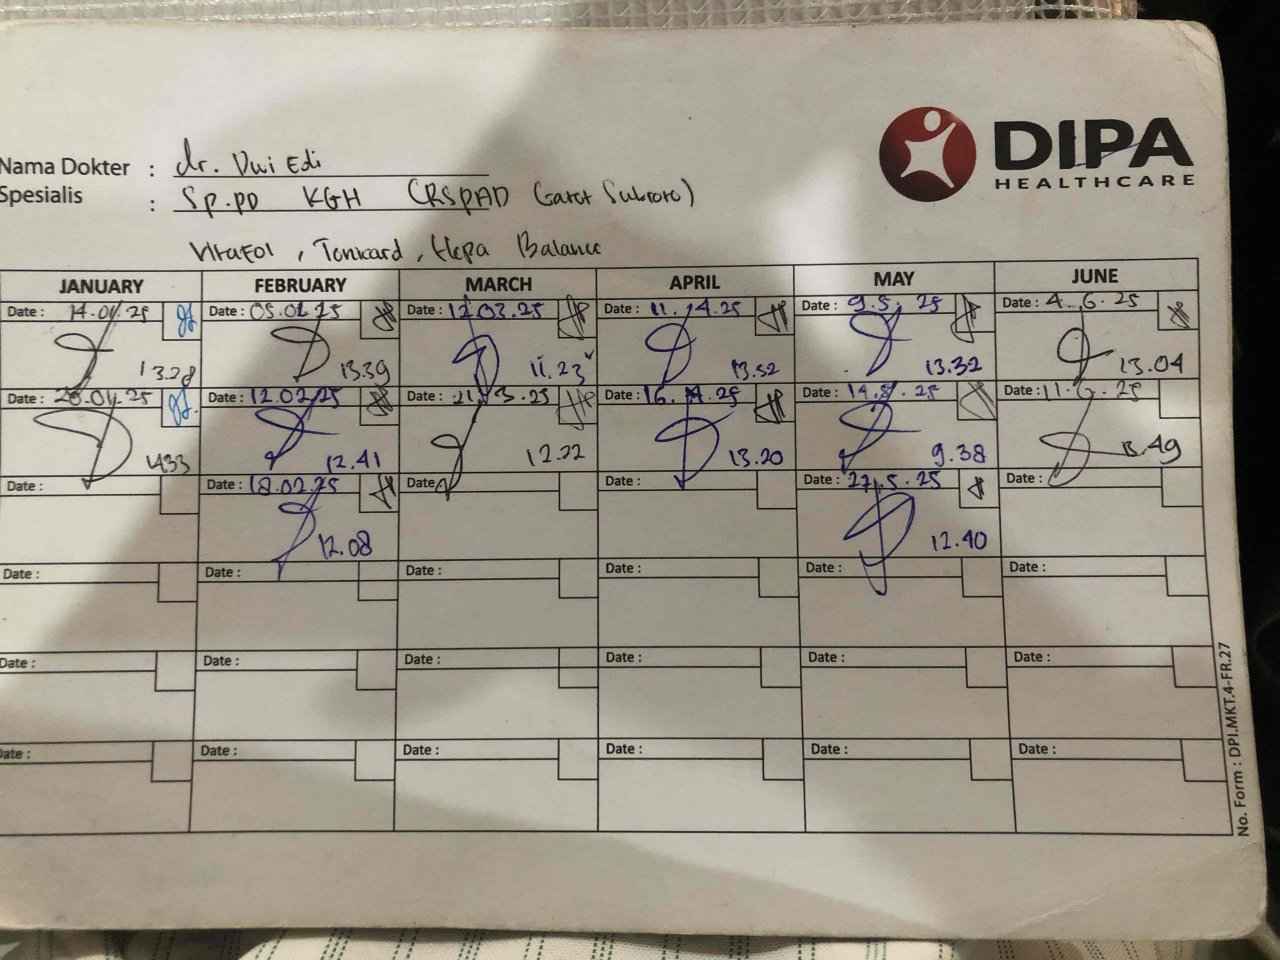 DIPA
HEALTHCARE
Nama Dokter : dr. Dwi Edi
Spesialis : Sp.PD KGH (RSPAD Gatot Subroto)
Tonicard, Hepa Balance
JANUARY FEBRUARY MARCH APRIL MAY JUNE
Date : 14.01.25 Date : 05.02.25 Date : 12.03.25 Date : 11.4.25 Date : 9.5.25 Date : 4.6.25
13.28 13.39 11.23 13.52 13.32 13.04
Date : .01.25 Date : 12.02.25 Date : 21.3.25 Date : 16.4.25 Date : 14.5.25 Date : 11.6.25
1433 12.41 12.22 13.20 9.38 13.49
Date : Date : 18.02.25 Date : Date : Date : 27.5.25 Date :
12.08 12.40
Date : Date : Date : Date : Date : Date :
Date : Date : Date : Date : Date : Date :
Date : Date : Date : Date : Date : Date :
No. Form : DPI.MKT.4-FR.27